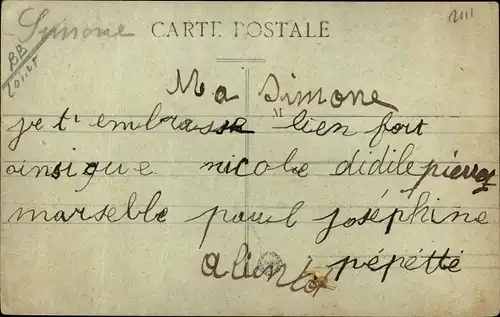 Simone
CARTE POSTALE
BB
Loiret
2111
Ma Simone
M
je t'embrasse bien fort
ainsi que nicole didile pierrog
marselble paul joséphine
a bientot pépétte